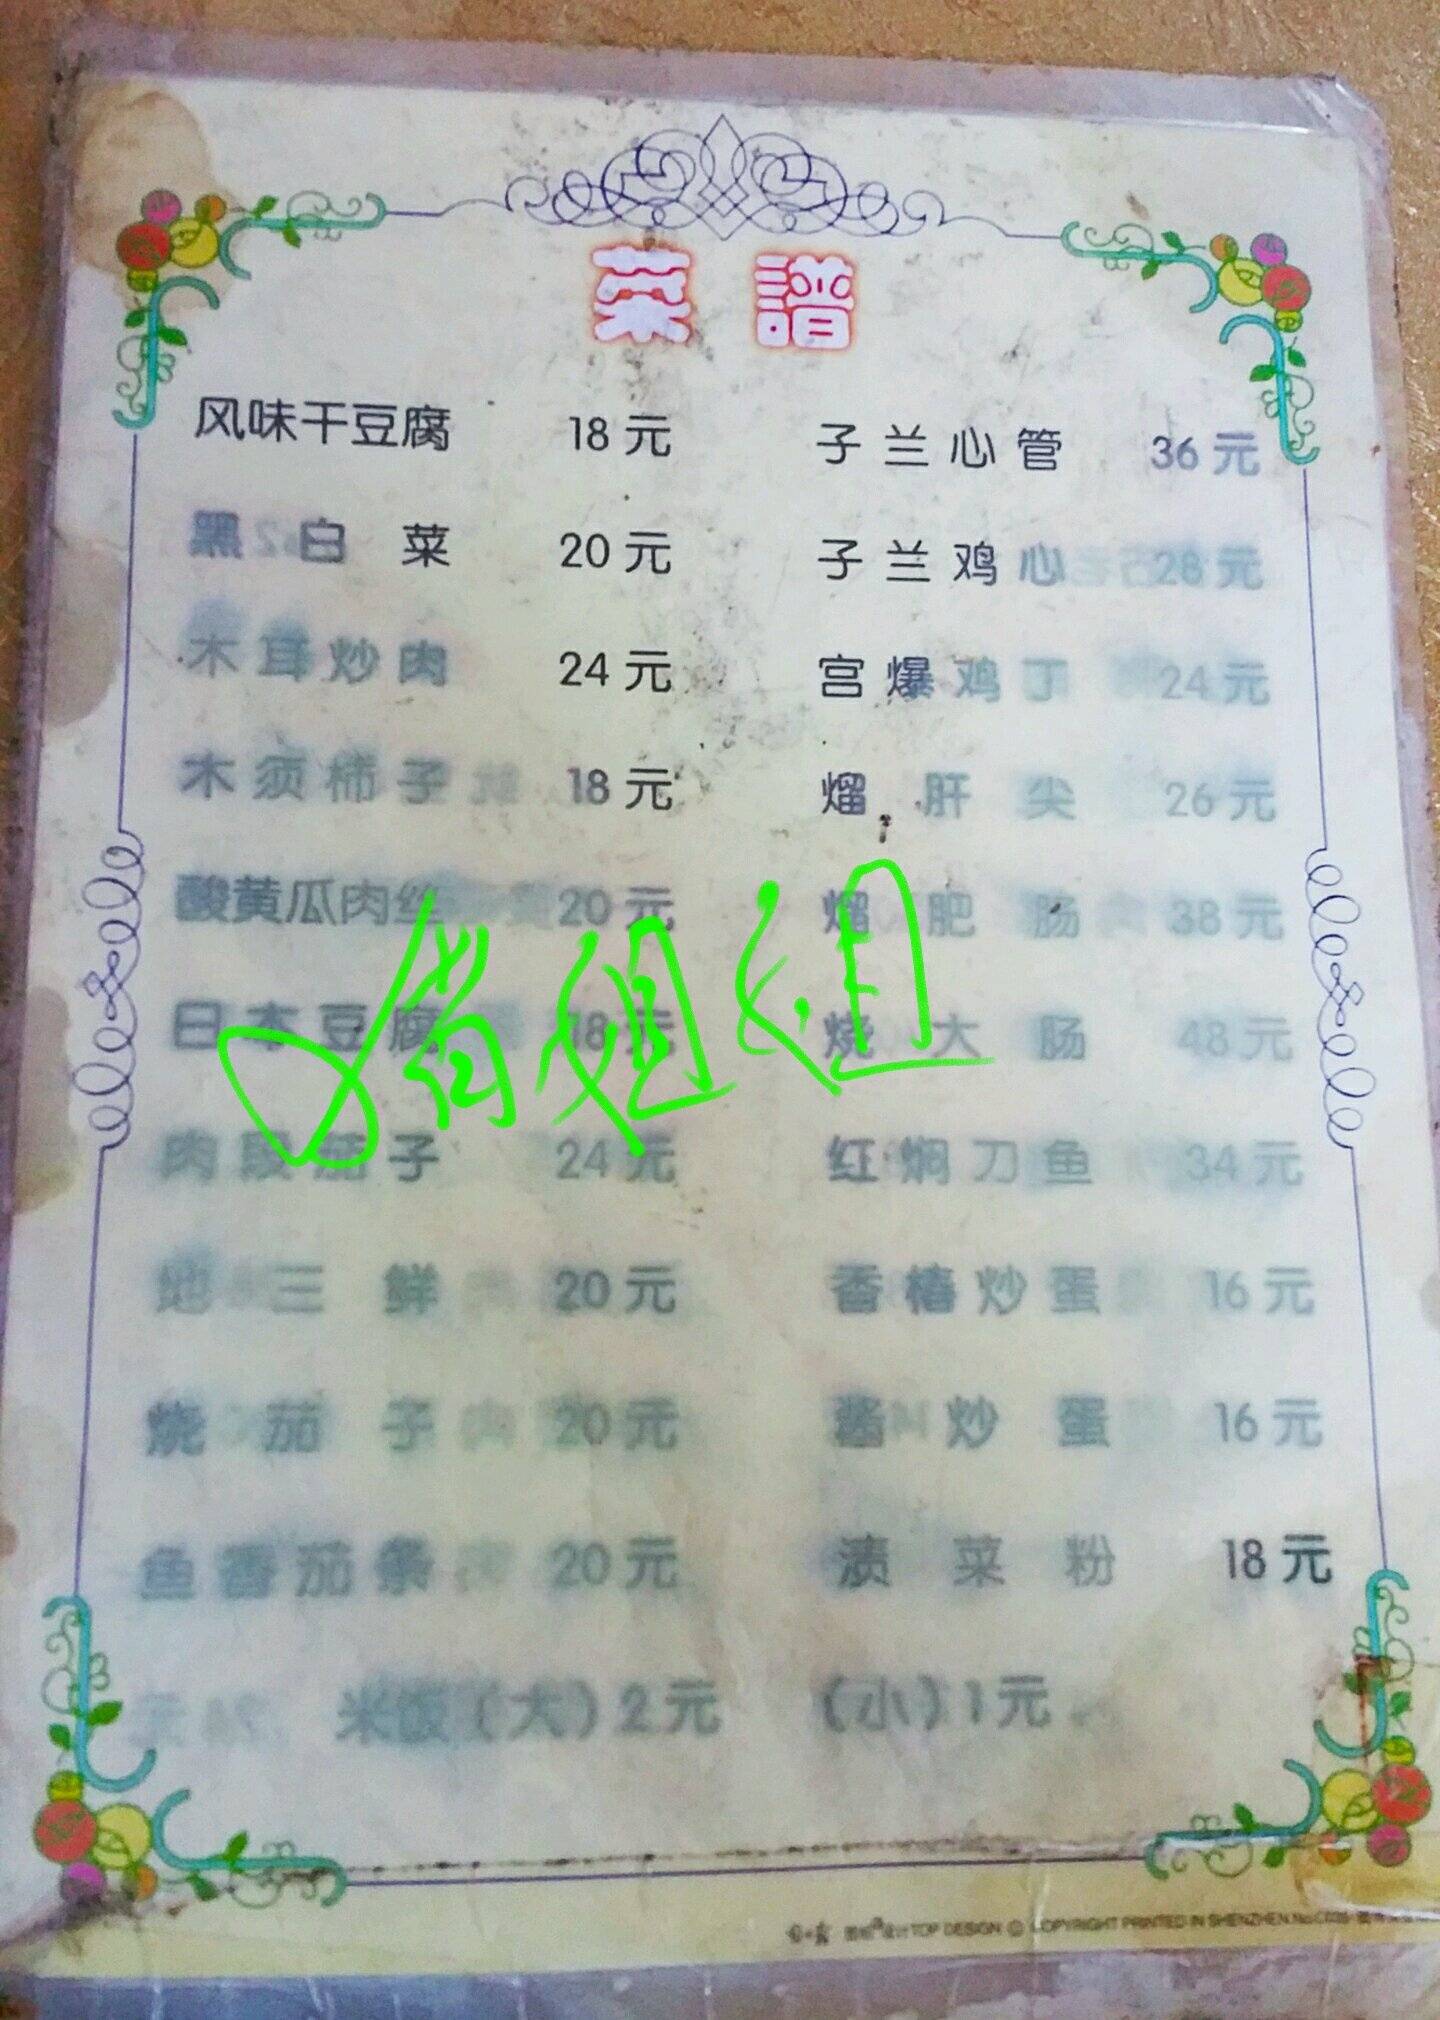 菜譜
风味干豆腐 18元 子兰心管 36元
黑白菜 20元 子兰鸡心 28元
木耳炒肉 24元 宫爆鸡丁 24元
木须柿子 18元 熘肝尖 26元
酸黄瓜肉丝 20元 熘肥肠 38元
日本豆腐 18元 烧大肠 48元
肉段茄子 24元 红焖刀鱼 34元
地三鲜 20元 香椿炒蛋 16元
烧茄子 20元 酱炒蛋 16元
鱼香茄条 20元 渍菜粉 18元
米饭(大)2元 (小)1元
TOP DESIGN © COPYRIGHT PRINTED IN SHENZHEN